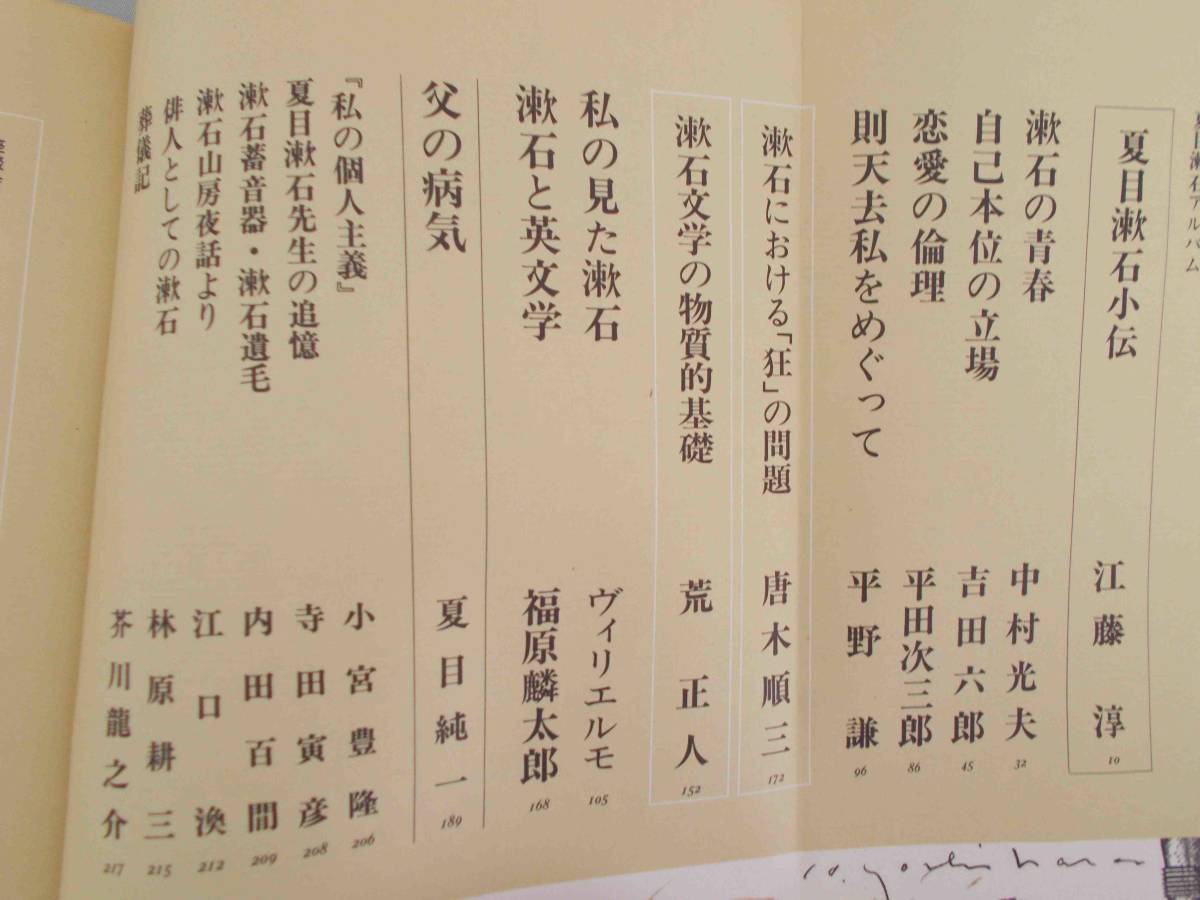 夏目漱石アルバム
夏目漱石小伝 江藤 淳 10
漱石の青春 中村光夫 32
自己本位の立場 吉田六郎 45
恋愛の倫理 平田次三郎 86
則天去私をめぐって 平野 謙 96
漱石における「狂」の問題 唐木順三 172
漱石文学の物質的基礎 荒 正人 152
私の見た漱石 ヴィリエルモ 105
漱石と英文学 福原麟太郎 168
父の病気 夏目純一 189
『私の個人主義』 小宮豊隆 206
夏目漱石先生の追憶 寺田寅彦 208
漱石蓄音器・漱石遺毛 内田百閒 209
漱石山房夜話より 江口 渙 212
俳人としての漱石 林原耕三 215
葬儀記 芥川龍之介 217